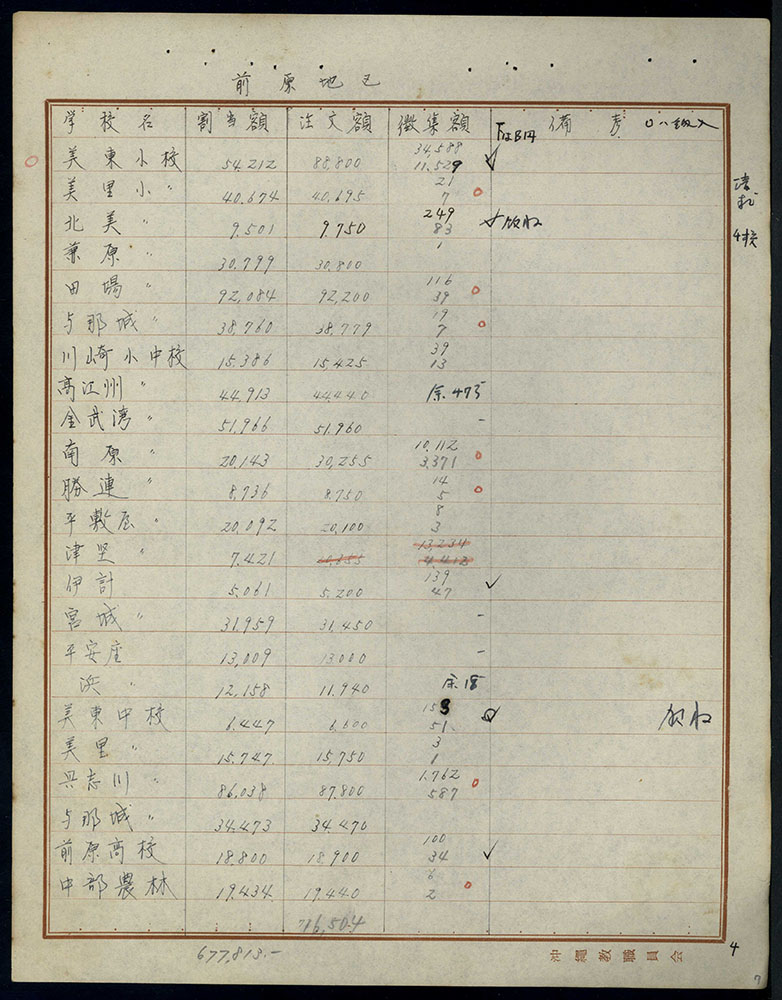 前原地区
学校名 割当額 注文額 徴集額 下はB円 備考 ○ハ全納入
美東小校 54,212 88,800 34,588 11,529
美里小〃 40,674 40,695 21 7
北美〃 9,501 9,750 249 83 領収
兼原〃 30,799 30,800 1
田場〃 92,084 92,200 116 39
与那城〃 38,760 38,779 19 7
川崎小中校 15,386 15,425 39 13
高江州〃 44,913 44,440 余.473
金武湾〃 51,966 51,960 -
南原〃 20,143 30,255 10,112 3,371
勝連〃 8,736 8,750 14 5
平敷屋〃 20,092 20,100 8 3
津堅〃 7,421 10,655 13,234 4,412
伊計 5,061 5,200 139 47
宮城〃 31,959 31,450 -
平安座 13,009 13,000 -
浜〃 12,158 11,940 余.18
美東中校 6,447 6,600 153 51 領収
美里〃 15,747 15,750 3 1
具志川〃 86,038 87,800 1,762 587
与那城〃 34,473 34,470
前原高校 18,800 18,900 100 34
中部農林 19,434 19,440 6 2
716,504
677,813.-
沖縄教職員会
4
7
4校